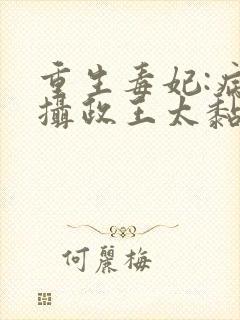 重生毒妃:病
攝政王太黏
何麗梅